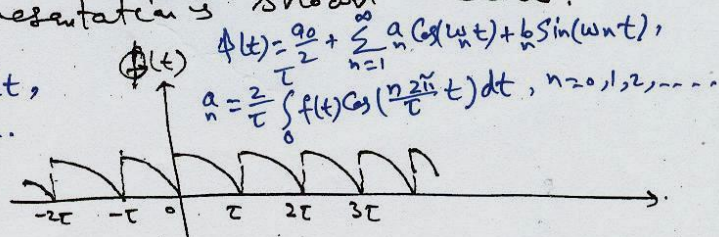 esentations
f(t) = a₀/2 + Σ_{n=1}^{∞} a_n Cos(ω_n t) + b_n Sin(ω_n t),
f(t)
t,
a_n = 2/τ ∫_0^τ f(t) Cos(n 2π/τ t) dt, n=0,1,2,.....
-2τ -τ 0 τ 2τ 3τ